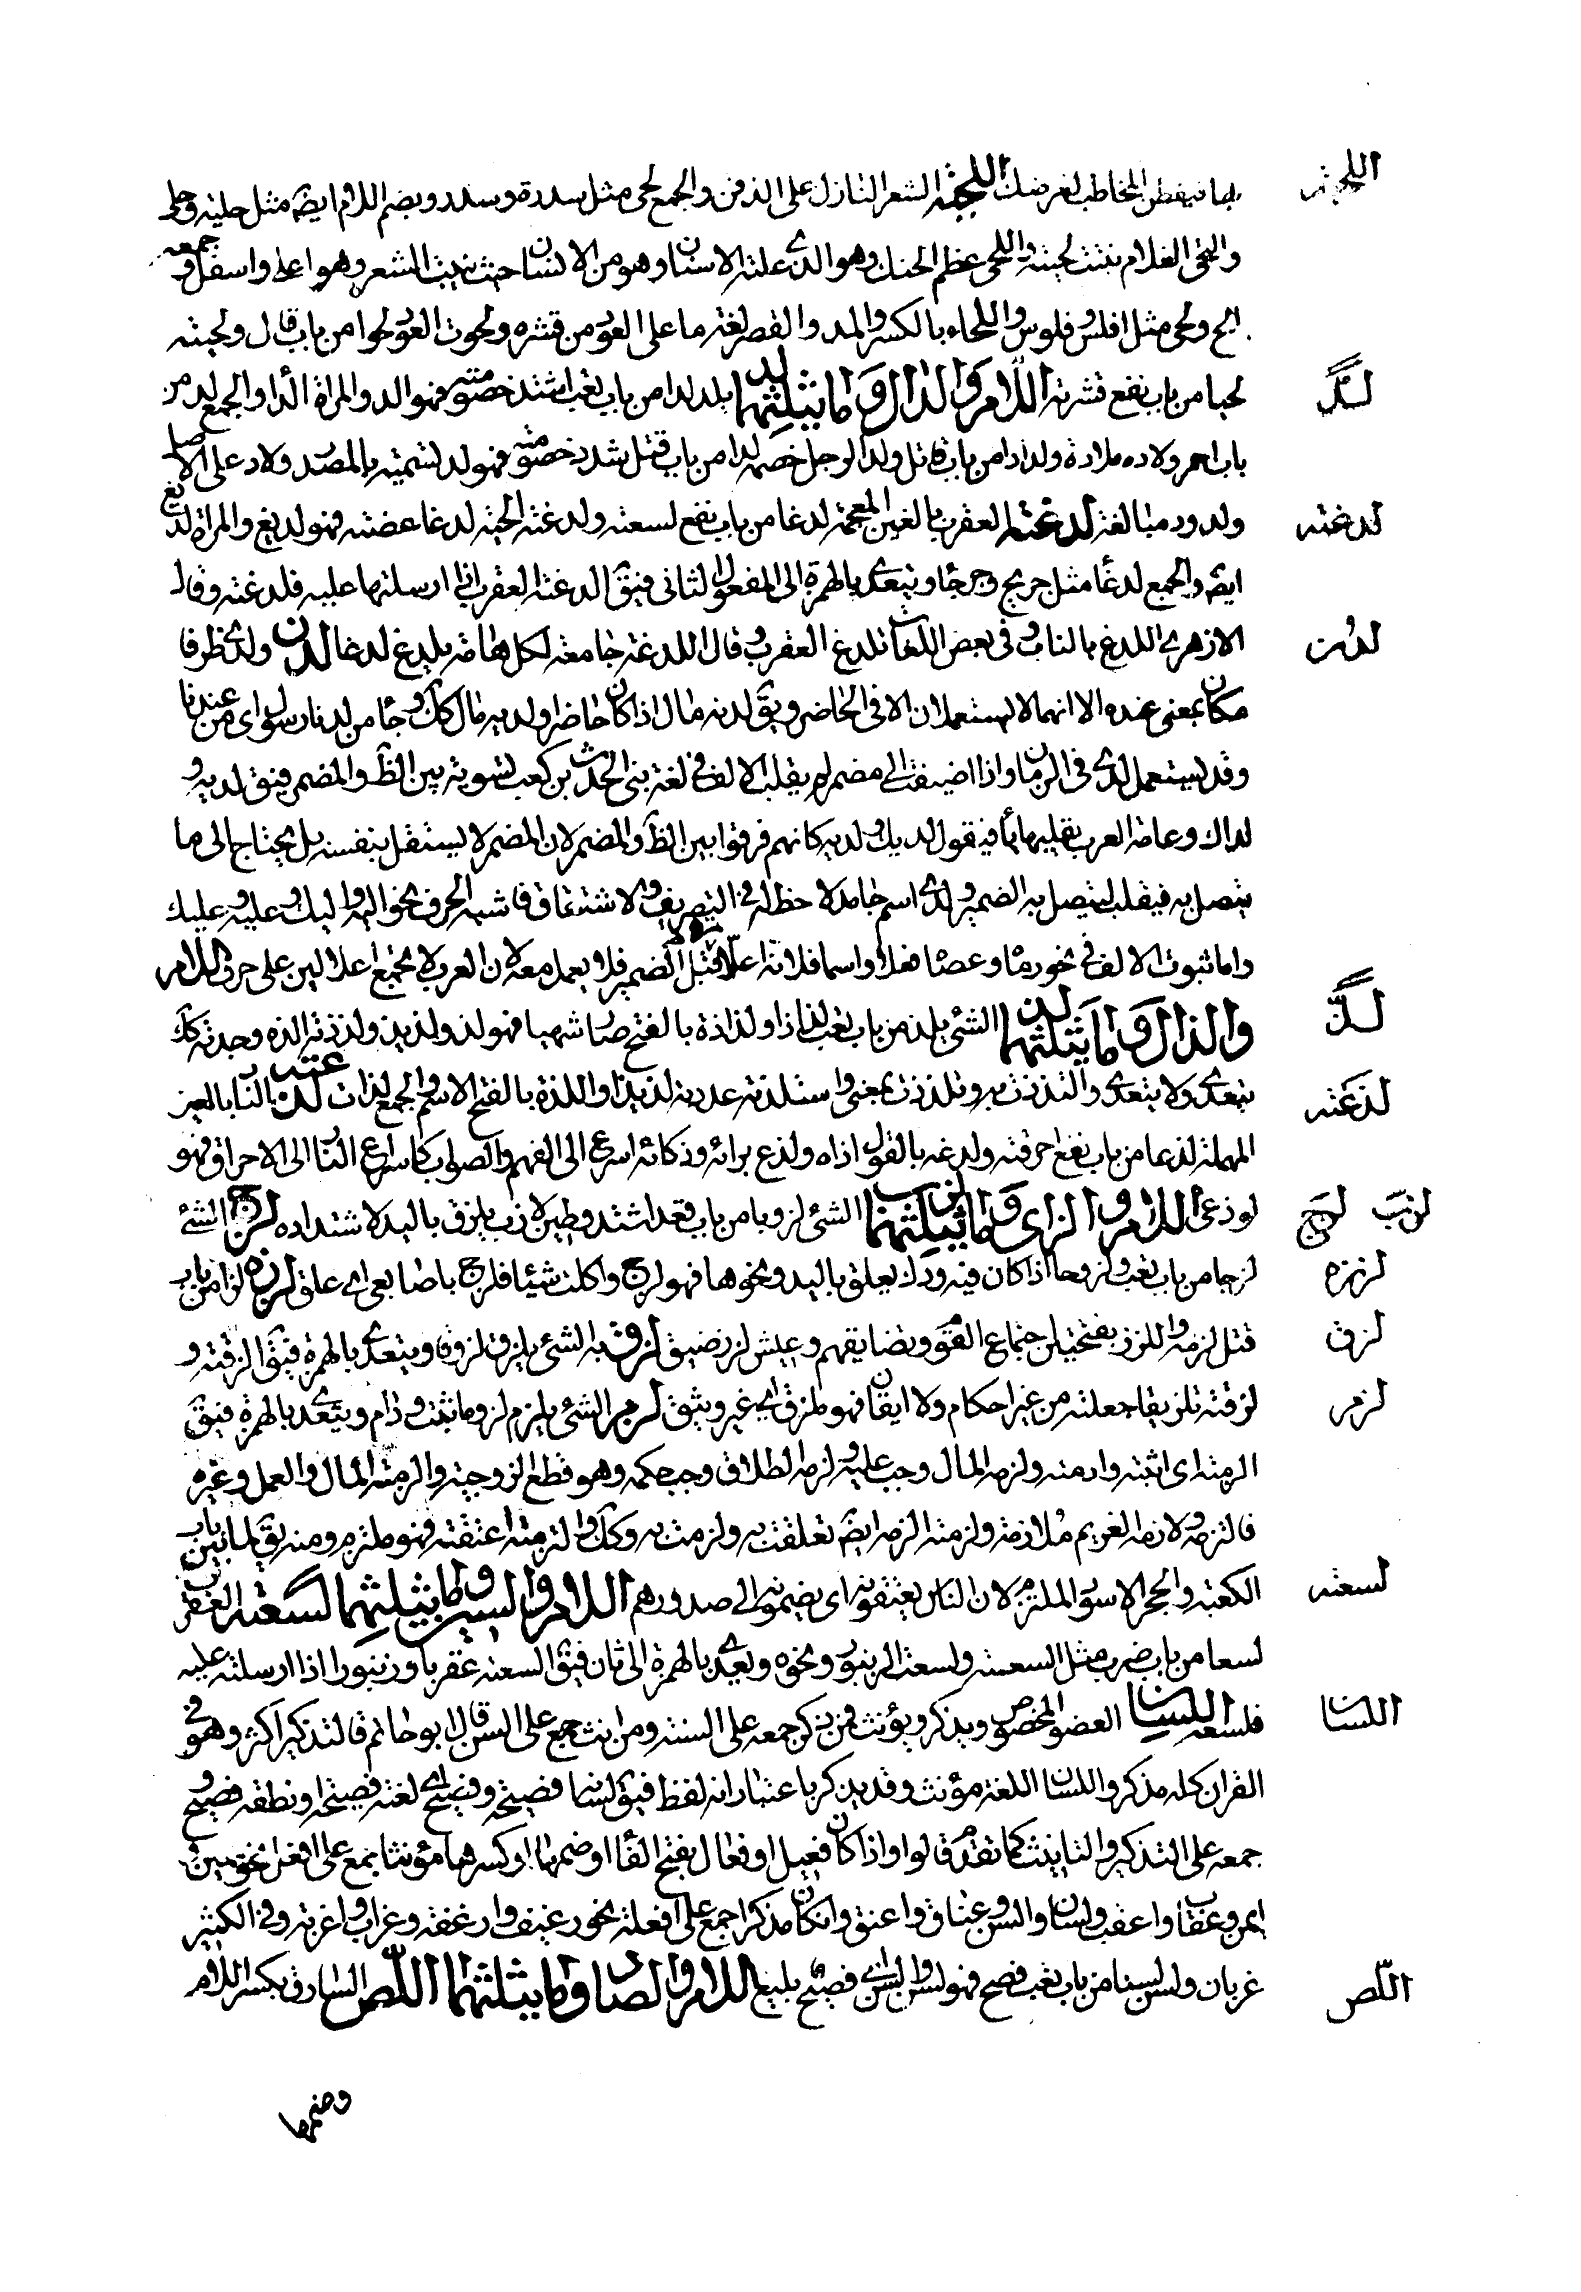 بها فيفطن المخاطب لغرضك اللحية الشعر النازل على الذقن والجمع لحى مثل سدرة وسدر وبضم اللام ايضا مثل حلية وحلى
اللحية
والتحى الغلام نبتت لحيته واللحى عظم الحنك وهو الذى عليه الاسنان وهو من الانسان حيث ينبت الشعر وهو اعلى واسفل وجمعه
الح ولحى مثل افلس وفلوس واللحاء بالكسر والمد والقصر لغة ما على العود من قشره ولحوت العود لحوا من باب قال ولحيته
لحيا من باب نفع قشرته اللام والدال وما يثلثهما لد يلد لددا من باب تعب اشتد خصومته فهو الد والمراة لداء والجمع لد من
لد
باب احمر ولاده ملادة ولدادا من باب قاتل ولد الرجل خصمه لدا من باب قتل شدد خصومته فهو لد تسمية بالمصدر ولاد على الاصل
ولدود مبالغة لدغته العقرب بالغين المعجمة لدغا من باب نفع لسعته ولدغته الحية لدغا عضته فهو لديغ والمراة لديغ
لدغته
ايضا والجمع لدغا مثل جريح وجرحا ويتعدى بالهمزة الى المفعول الثانى فيق الدغته العقرب اذا ارسلتها عليه فلدغته وقال
الازهرى اللدغ بالناب وفى بعض اللغات تلدغ العقرب وقال اللدغة جامعة لكل هامة يلدغ لدغا لدن ولدى ظرفا
لدن
مكان بمعنى عنده الا انهما لا يستعملان الا فى الحاضر ويق لدنه مال اذا كان حاضرا ولديه مال كك وجاء من لدنا رسول اى من عندنا
وقد يستعمل لدى فى الزمان واذا اضيفت الى مضمر لم يقلب الالف فى لغة بنى الحرث بن كعب تسوية بين الظ والمضمر فيق لديه و
لداك وعامة العرب يقلبها ياء فيقول لديك ولديه كانهم فرقوا بين الظ والمضمر لان المضمر لا يستقل بنفسه بل يحتاج الى ما
يتصل به فيقلب ليتصل به الضمير ولدى اسم جامد لا حظ له فى التصريف والاشتقاق فاشبه الحرف نحو اليه واليك وعليه وعليك
واما ثبوت الالف فى نحو رماه وعصاه فعلا واسما فلانه اعل قبل الضمير فلا يعمل معه لان العرب لا تجمع اعلالين على حرف اللام
والذال وما يثلثهما لذ الشئ يلذ من باب تعب لذاذا ولذاذة بالفتح صار شهيا فهو لذ ولذيذ ولذذته الذه وجدته كك
لذ
يتعدى ولا يتعدى والتذذت به وتلذذت بمعنى واستلذته عددته لذيذا واللذة بالفتح الاسم والجمع لذات لذعته النار بالعين
لذعته
المهملة لذعا من باب نفع احرقته ولذعه بالقول اذاه ولذع برائه وذكائه اسرع الى الفهم والصواب كاسراع النار الى الاحراق فهو
لوذعى اللام والزاى وما يثلثهما لزب الشئ لزوبا من باب قعد اشتد وطين لازب يلزق باليد لاشتداده لزج الشئ
لزب لزج
لزجا من باب تعب ولزوجا اذا كان فيه ودك يعلق باليد ونحوها فهو لزج واكلت شيئا فلزج باصابعى اى علق لزه لزا من باب
لزه
قتل لزمه واللزز بفتحتين اجتماع القوم وتضايقهم وعيش لزز ضيق لزق به الشئ يلزق لزوقا ويتعدى بالهمزة فيق الزقته و
لزق
لزقته تلزيقا جعلته من غير احكام ولا ايقان فهو ملزق اى غير وثيق لزم الشئ يلزم لزوما ثبت ودام ويتعدى بالهمزة فيق
لزم
الزمته اى اثبته وادمته ولزمه المال وجب عليه ولزمه الطلاق وجب حكمه وهو قطع الزوجية والزمته المال والعمل وغيره
فالتزمه ولازمه الغريم ملازمة ولزمته الزمه ايضا تعلقت به ولزمت به وكك والتزمته اعتنقته فهو ملتزم ومنه يق لما بين باب
الكعبة والحجر الاسود الملتزم لان الناس يعتنقونه اى يضمونه الى صدورهم اللام والسين وما يثلثهما لسعته العقرب
لسعته
لسعا من باب ضرب مثل السعته ولسعته الزنبور ونحوه ويعدى بالهمزة الى ثان فيق السعته عقربا وزنبورا اذا ارسلته عليه
فلسعه اللسان العضو المخصوص ويذكر ويؤنث فمن ذكر جمعه على السنة ومن انث جمع على السن قال ابو حاتم فالتذكير اكثر وهو فى
اللسان
القران كله مذكر واللسان اللغة مؤنث وقد يذكر باعتبار انه لفظ فيق لسانه فصيحة وفصيح اى لغته فصيحة او نطقه فصيح و
جمعه على التذكير والتانيث كما تقدم قالوا واذا كان فعيل او فعال بفتح الفا او ضمها او كسرها مؤنثا جمع على افعل نحو يمين
ايمن وعقاب واعقب ولسان والسن وعناق واعنق وانكان مذكرا جمع على افعلة نحو رغيف وارغفة وغراب واغربة وفى الكثير
غربان ولسن لسنا من باب تعب فصح فهو لسن والسن اى فصيح بليغ اللام والصاد وما يثلثهما اللص السارق بكسر اللام
اللص
وضمها